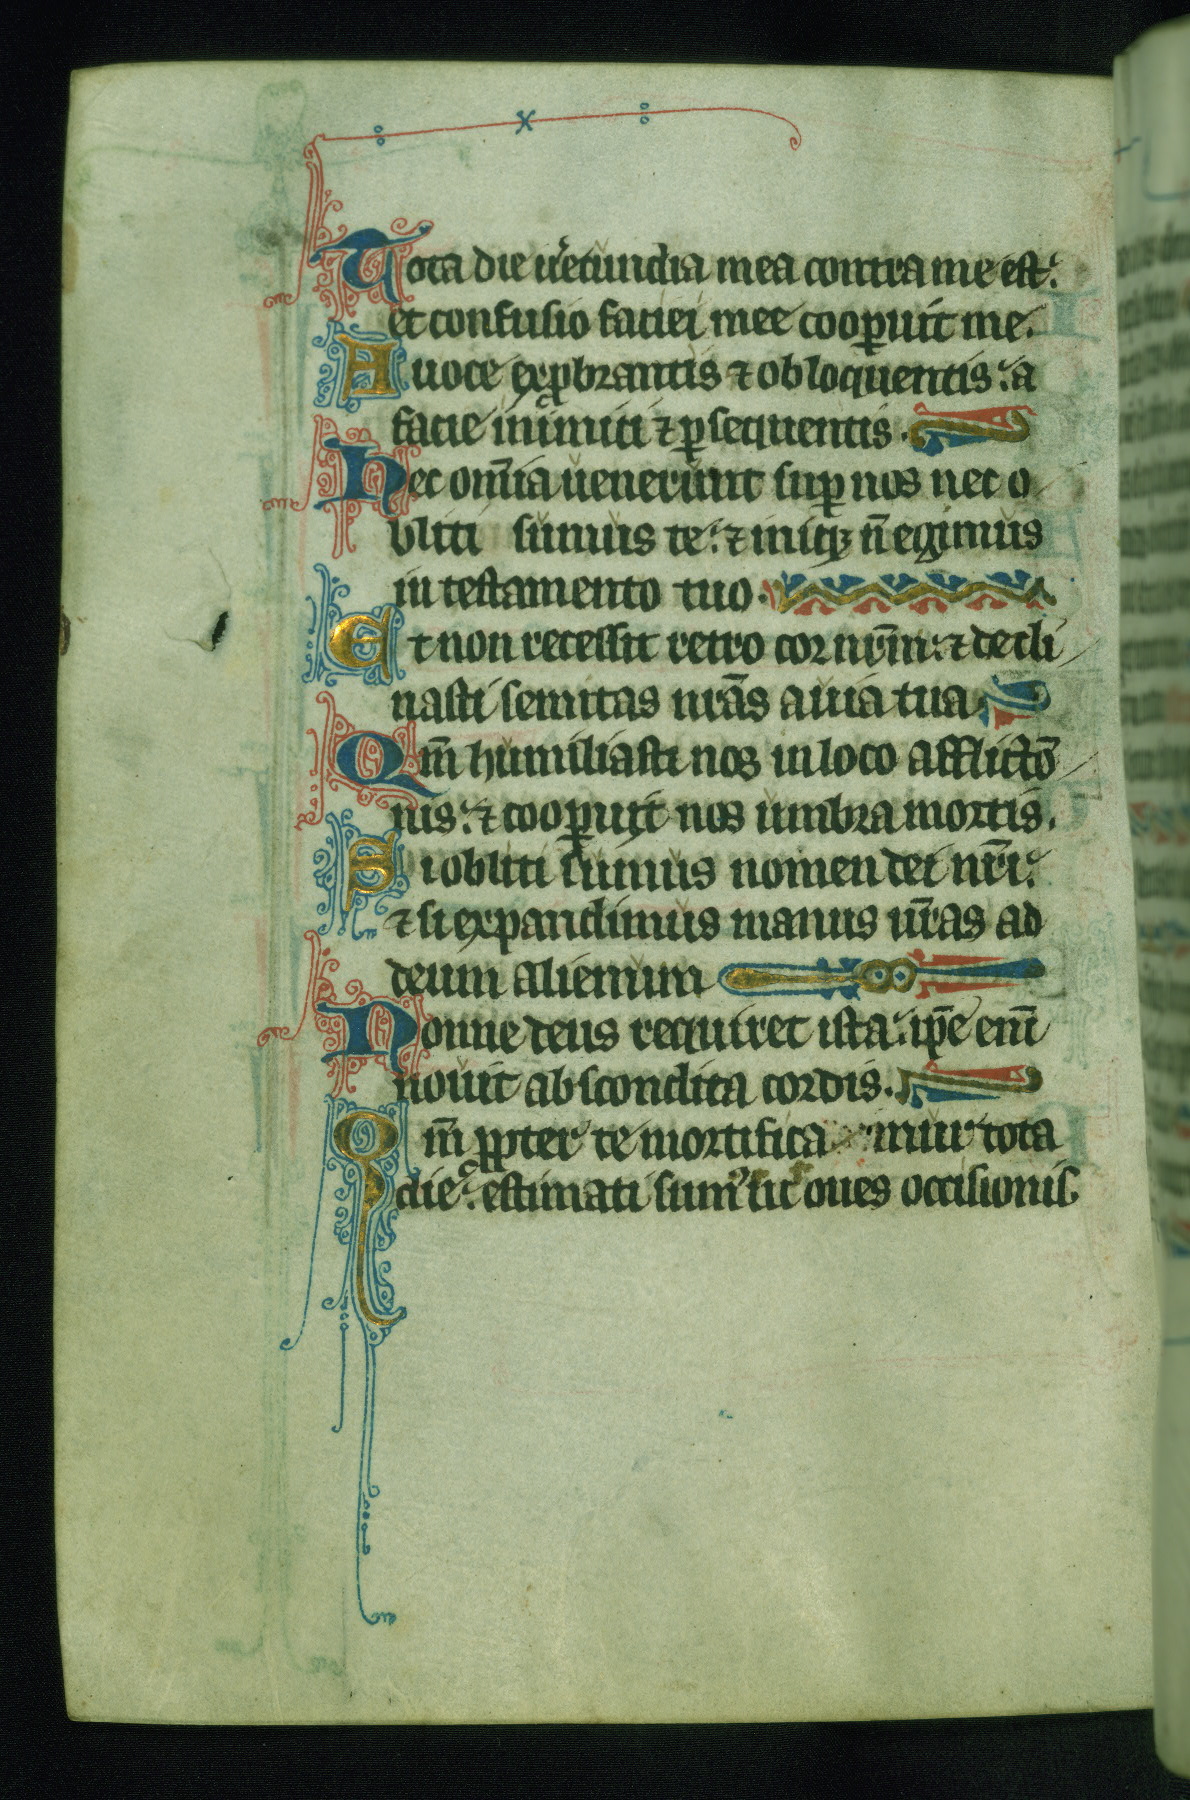 Tota die u̾ecundia mea contra me est:
et confusio faciei mee coop̱uit me.
A uoce exp̱brantis ⁊ obloquentis: a
facie inimici ⁊ p̱sequentis.
Hec om̄ia uenerunt sup̱ nos nec o
bliti sumus te: ⁊ iniq̱ꝫ n̄ egimus
in testamento tuo.
Et non recessit retro cor nr̄m: ⁊ decli
nasti semitas nr̄as a uia tua
Qm̄ humiliasti nos in loco afflictō
nis: ⁊ coop̱uit nos umbra mortis.
Si obliti sumus nomen dei nr̄i:
⁊ si expandimus manus nr̄as ad
deum alienum
Nonne deus requiret ista: ip̄e enī
nouit abscondita cordis.
Qm̄ pp̱ter te mortifica mur tota
die: estimati sumꝰ sic̄ oues occisionis